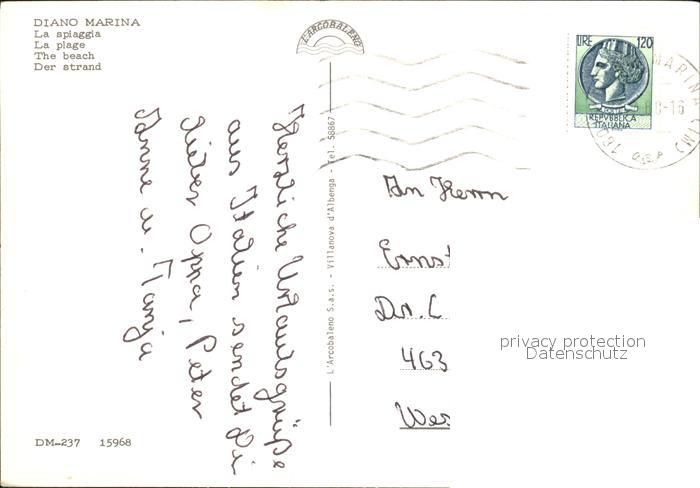 DIANO MARINA
La spiaggia
La plage
The beach
Der strand
L'ARCOBALENO
LIRE 120
POSTE
REPVBBLICA
ITALIANA
MARINA
-16
180
(IM)
L'Arcobaleno S.a.s. - Villanova d'Albenga - Tel. 58867
Herzliche Urlaubsgrüße
aus Italien sendet Dir
lieber Oppa, Peter
Hanne u. Tanja
An Herrn
Ernst
Dr. L
463
Wes
privacy protection
Datenschutz
DM-237 15968